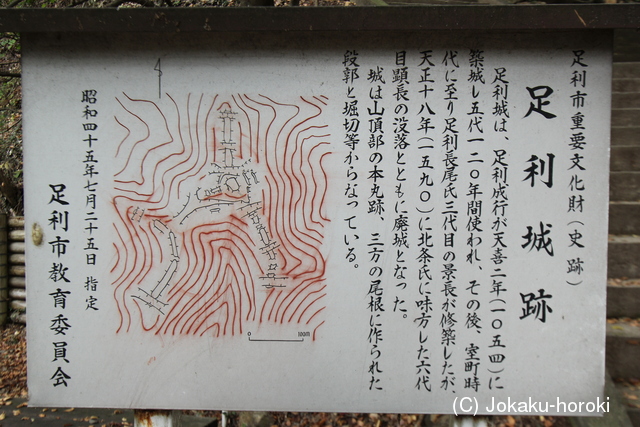 足利市重要文化財（史跡）
足利城跡
足利城は、足利成行が天喜二年（一〇五四）に
築城し五代一二〇年間使われ、その後、室町時
代に至り足利長尾氏三代目の景長が修築したが、
天正十八年（一五九〇）に北条氏に味方した六代
目顕長の没落とともに廃城となった。
城は山頂部の本丸跡、三方の尾根に作られた
段郭と堀切等からなっている。
昭和四十五年七月二十五日 指定
足利市教育委員会
0 100m
(C) Jokaku-horoki